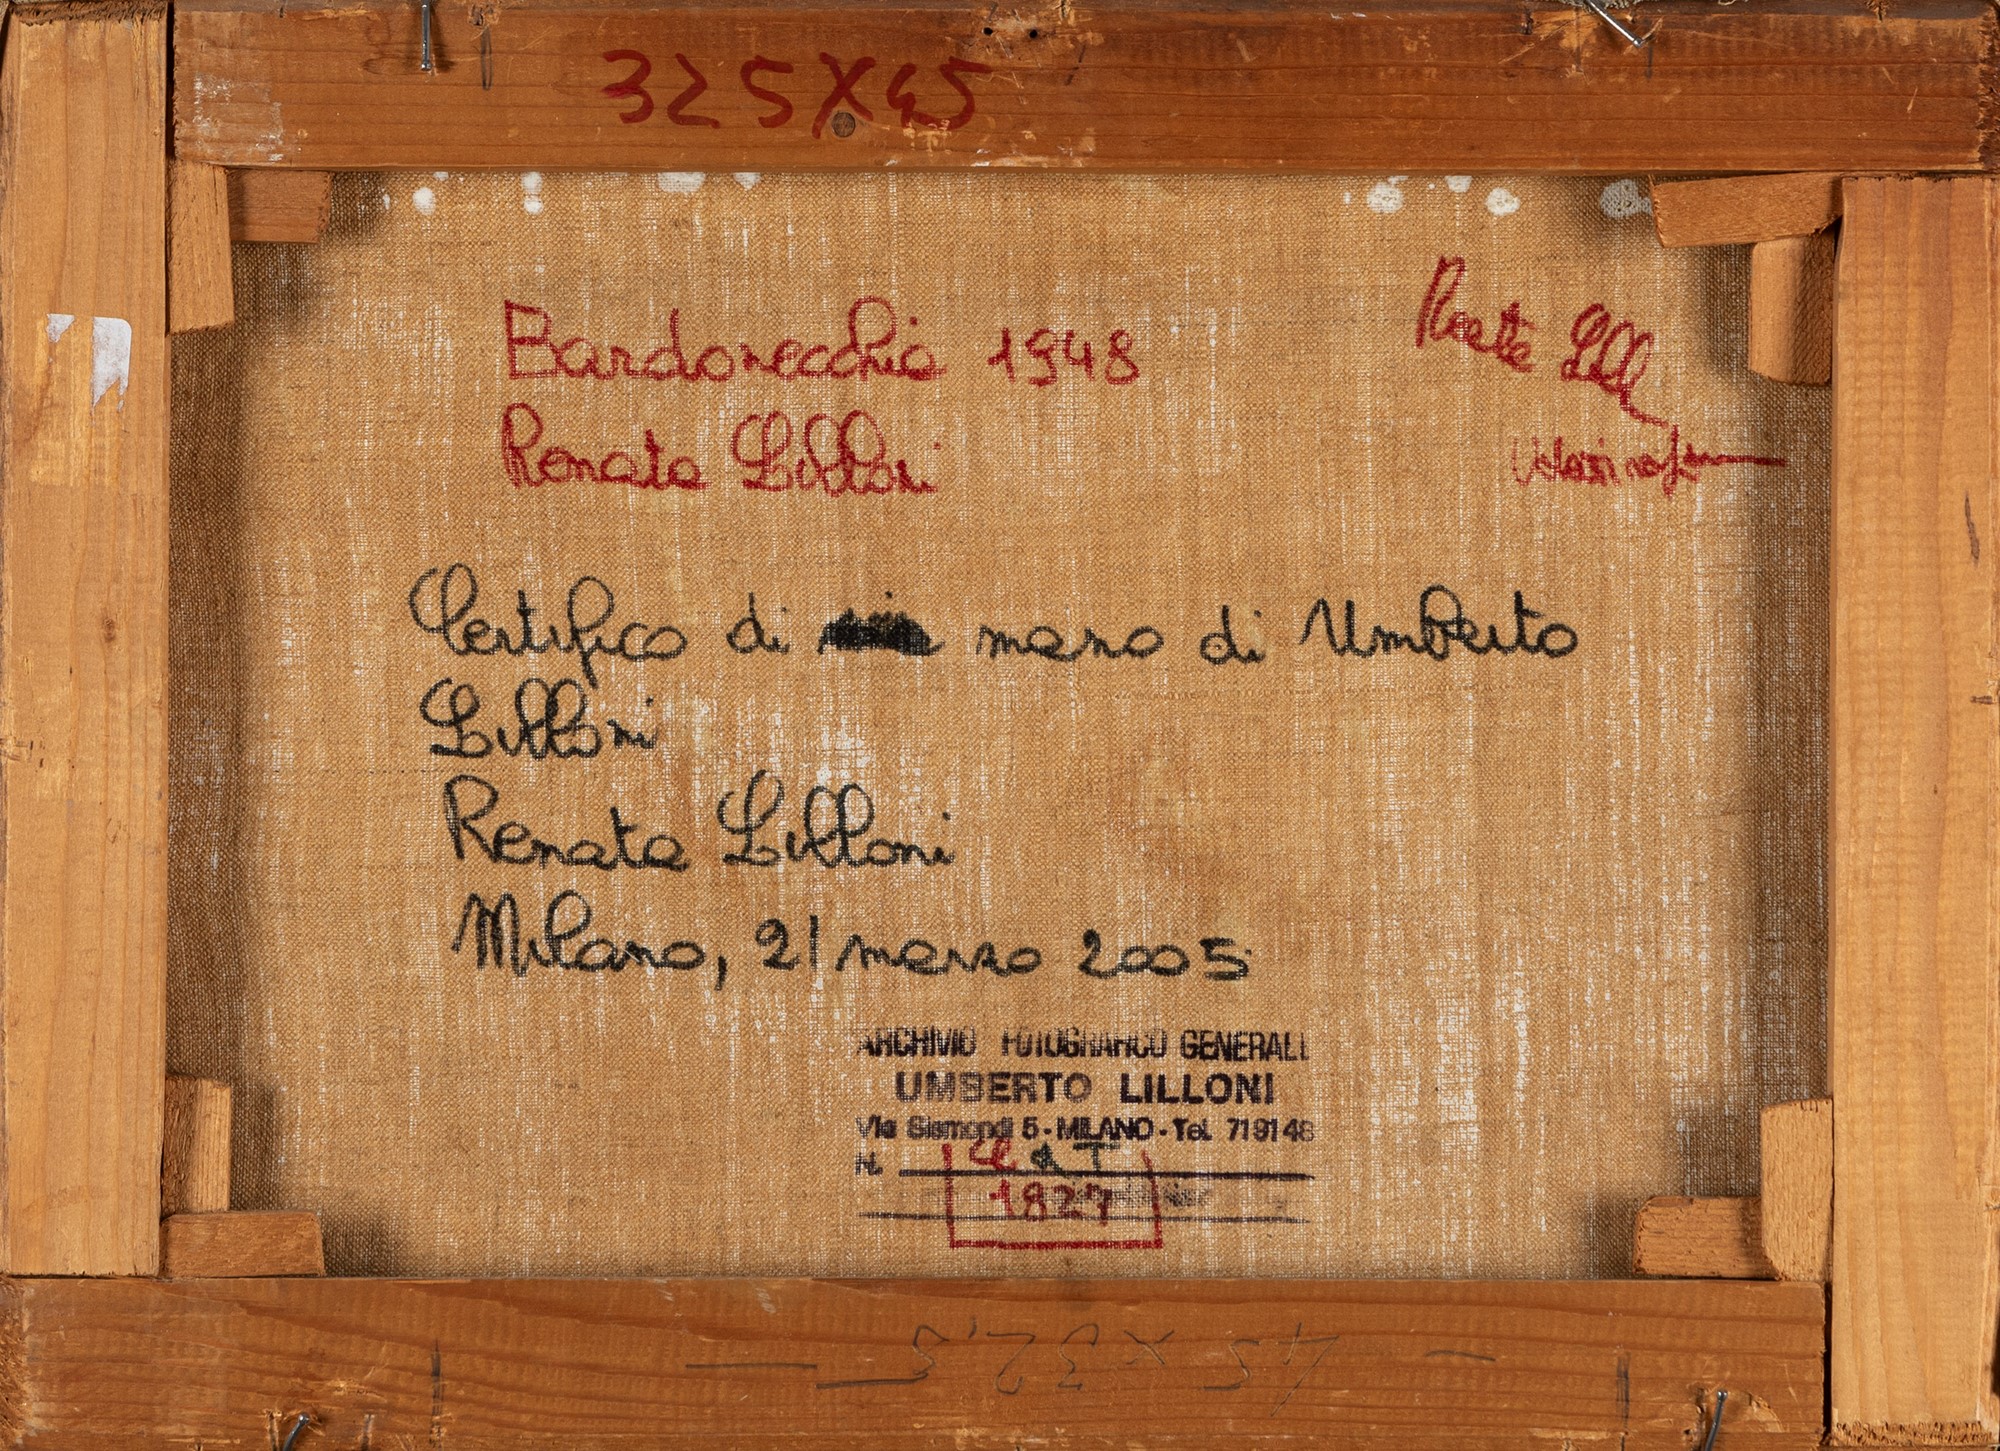 325X45
Bardonecchia 1948
Renata Lilloni
Certifico di mano di Umberto
Lilloni
Renata Lilloni
Milano, 21 marzo 2005
ARCHIVIO FOTOGRAFICO GENERALE
UMBERTO LILLONI
Via Sismondi 5 - MILANO - Tel. 719148
N.
1827
45 x 32,5